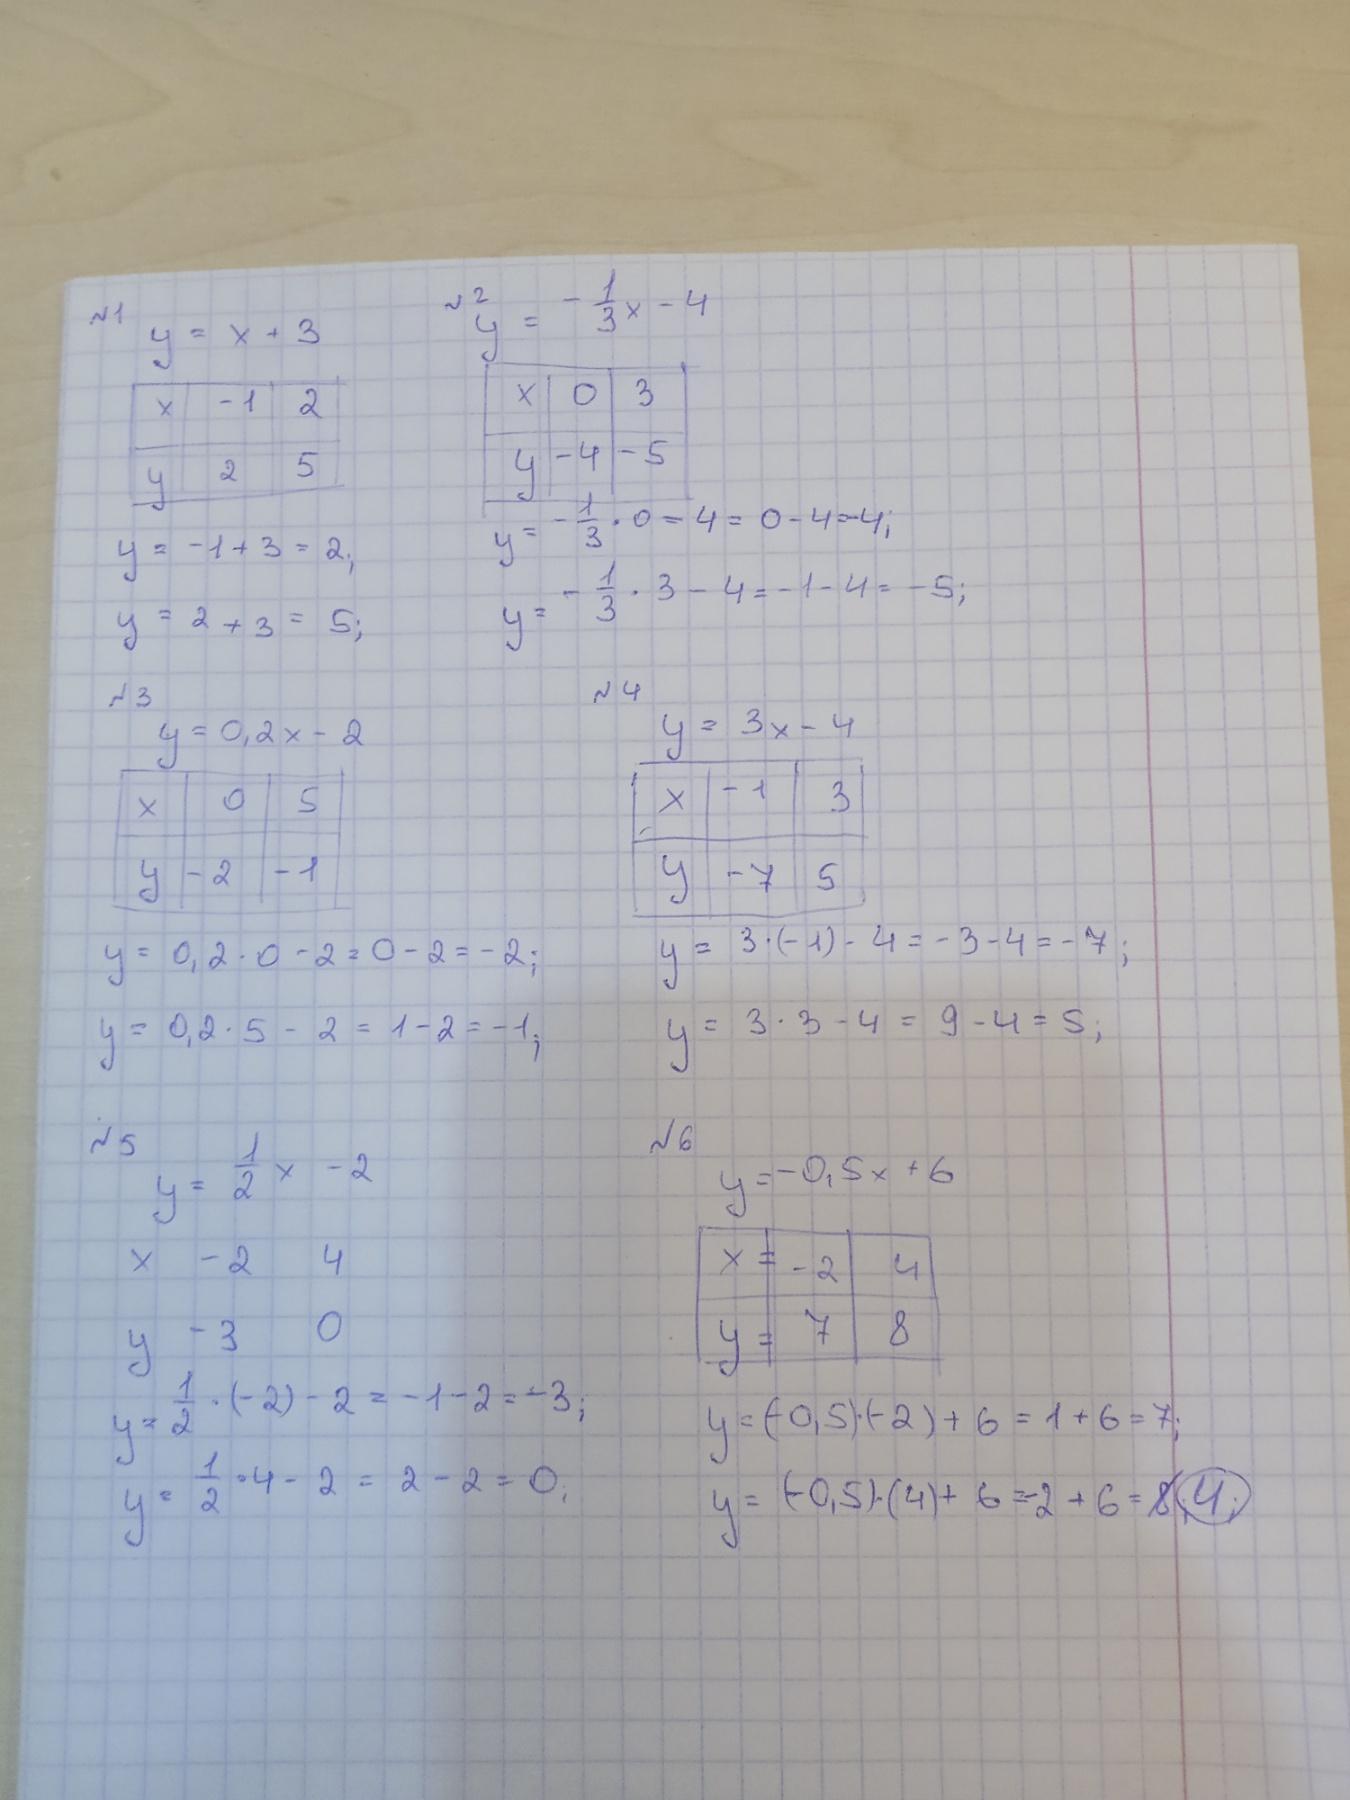 №1
y = x + 3
x -1 2
y 2 5
y = -1 + 3 = 2;
y = 2 + 3 = 5;
№2
y = -1/3 x - 4
x 0 3
y -4 -5
y = -1/3 · 0 - 4 = 0 - 4 = -4;
y = -1/3 · 3 - 4 = -1 - 4 = -5;
№3
y = 0,2x - 2
x 0 5
y -2 -1
y = 0,2 · 0 - 2 = 0 - 2 = -2;
y = 0,2 · 5 - 2 = 1 - 2 = -1;
№4
y = 3x - 4
x -1 3
y -7 5
y = 3 · (-1) - 4 = -3 - 4 = -7;
y = 3 · 3 - 4 = 9 - 4 = 5;
№5
y = 1/2 x - 2
x -2 4
y -3 0
y = 1/2 · (-2) - 2 = -1 - 2 = -3;
y = 1/2 · 4 - 2 = 2 - 2 = 0;
№6
y = -0,5x + 6
x = -2 4
y = 7 8
y = (-0,5) · (-2) + 6 = 1 + 6 = 7;
y = (-0,5) · (4) + 6 = -2 + 6 = 8; 4;